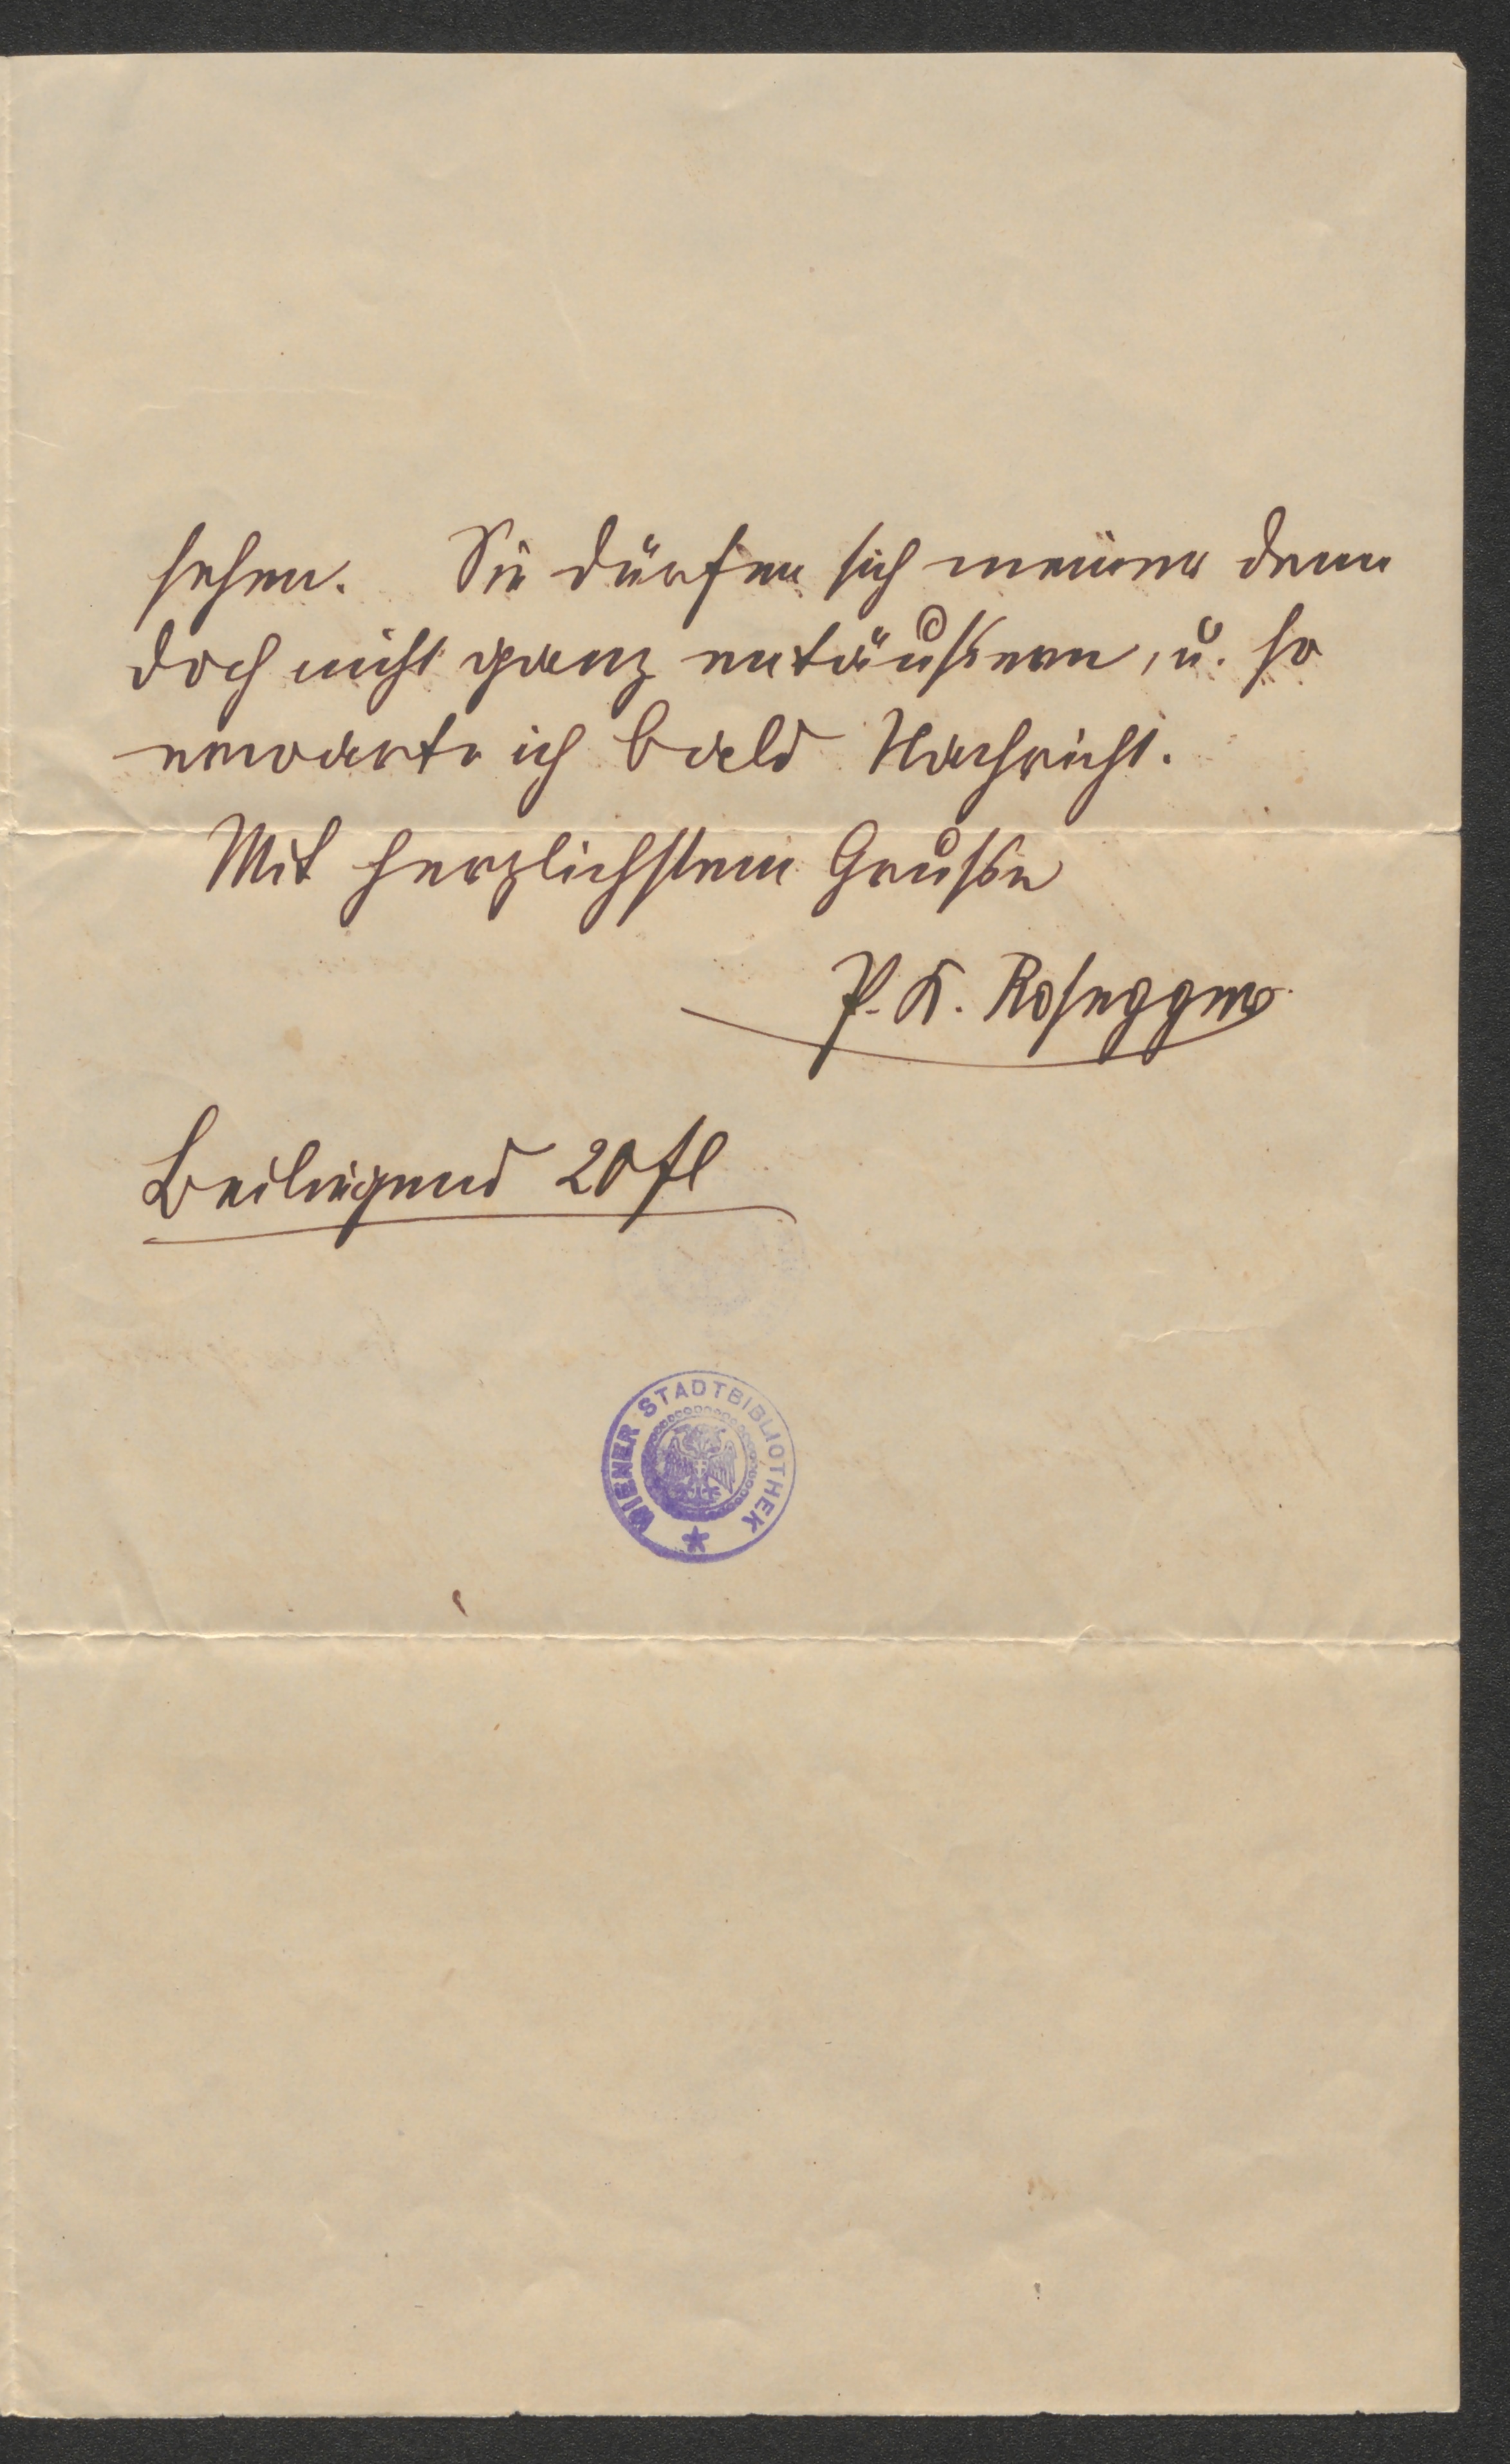 sehen. Sie dürfen sich meiner denn
doch nicht ganz entäußern, u. so
erwarte ich bald Nachricht.
Mit herzlichstem Gruße
P. K. Rosegger
Beiliegend 20 fl
WIENER STADTBIBLIOTHEK